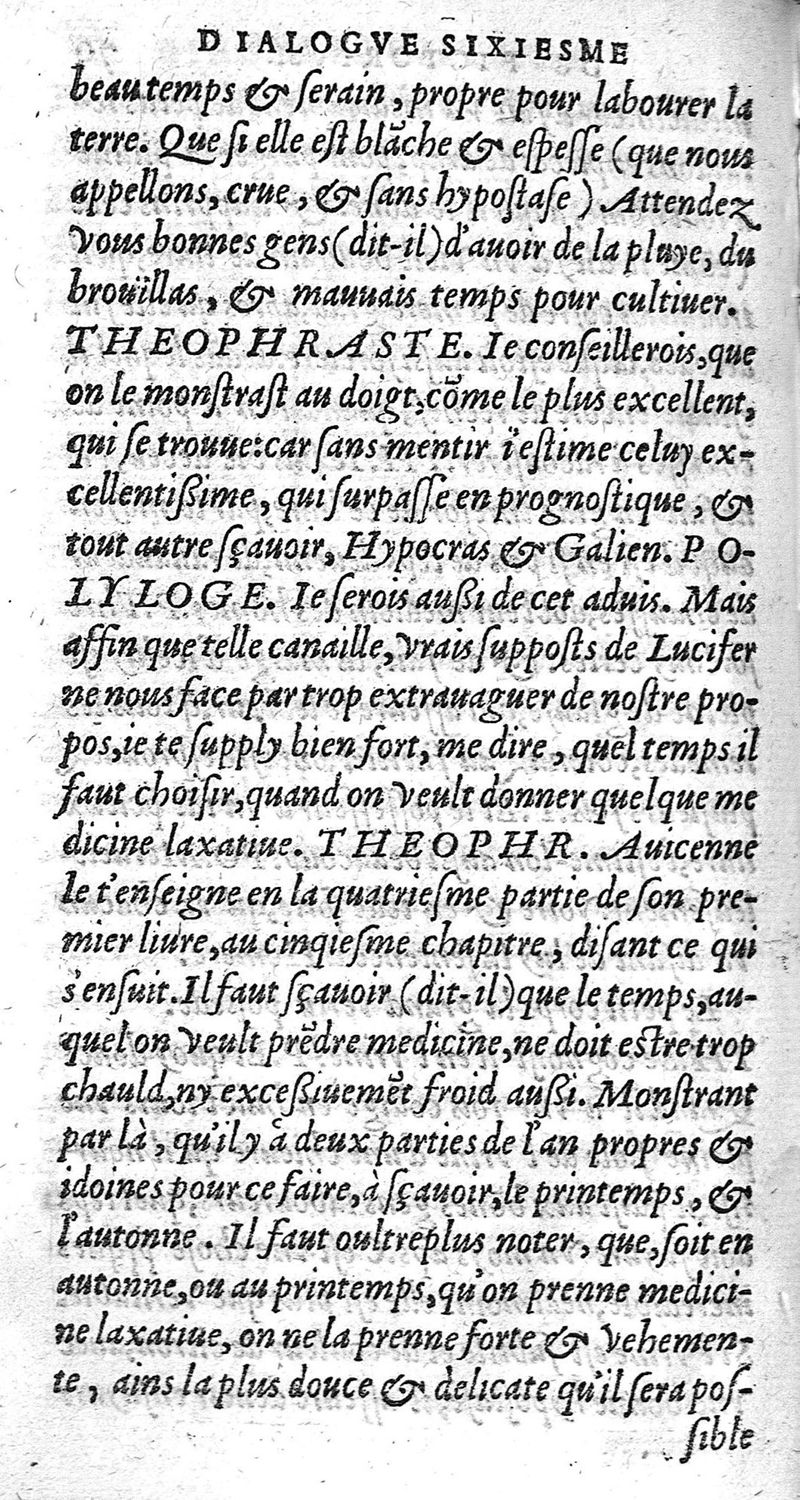 DIALOGVE SIXIESME
beau temps & ſerain, propre pour labourer la
terre. Que ſi elle eſt blãche & eſpeſſe (que nous
appellons, crue, & ſans hypoſtaſe) Attendez
vous bonnes gens (dit-il) d'auoir de la pluye, du
brouïllas, & mauuais temps pour cultiuer.
THEOPHRASTE. Ie conſeillerois, que
on le monſtraſt au doigt, cõme le plus excellent,
qui ſe trouue: car ſans mentir i'eſtime celuy ex-
cellentißime, qui ſurpaſſe en prognoſtique, &
tout autre ſçauoir, Hypocras & Galien. PO-
LYLOGE. Ie ſerois außi de cet aduis. Mais
affin que telle canaille, vrais ſuppoſts de Lucifer
ne nous face par trop extrauaguer de noſtre pro-
pos, ie te ſupply bien fort, me dire, quel temps il
faut choiſir, quand on veult donner quelque me
dicine laxatiue. THEOPHR. Auicenne
le t'enſeigne en la quatrieſme partie de ſon pre-
mier liure, au cinqieſme chapitre, diſant ce qui
s'enſuit. Il faut ſçauoir (dit-il) que le temps, au-
quel on veult prẽdre medicine, ne doit eſtre trop
chauld, ny exceßiuemẽt froid außi. Monſtrant
par là, qu'il y à deux parties de l'an propres &
idoines pour ce faire, à ſçauoir, le printemps, &
l'autonne. Il faut oultreplus noter, que, ſoit en
autonne, ou au printemps, qu'on prenne medici-
ne laxatiue, on ne la prenne forte & vehemen-
te, ains la plus douce & delicate qu'il ſera poſ-
ſible